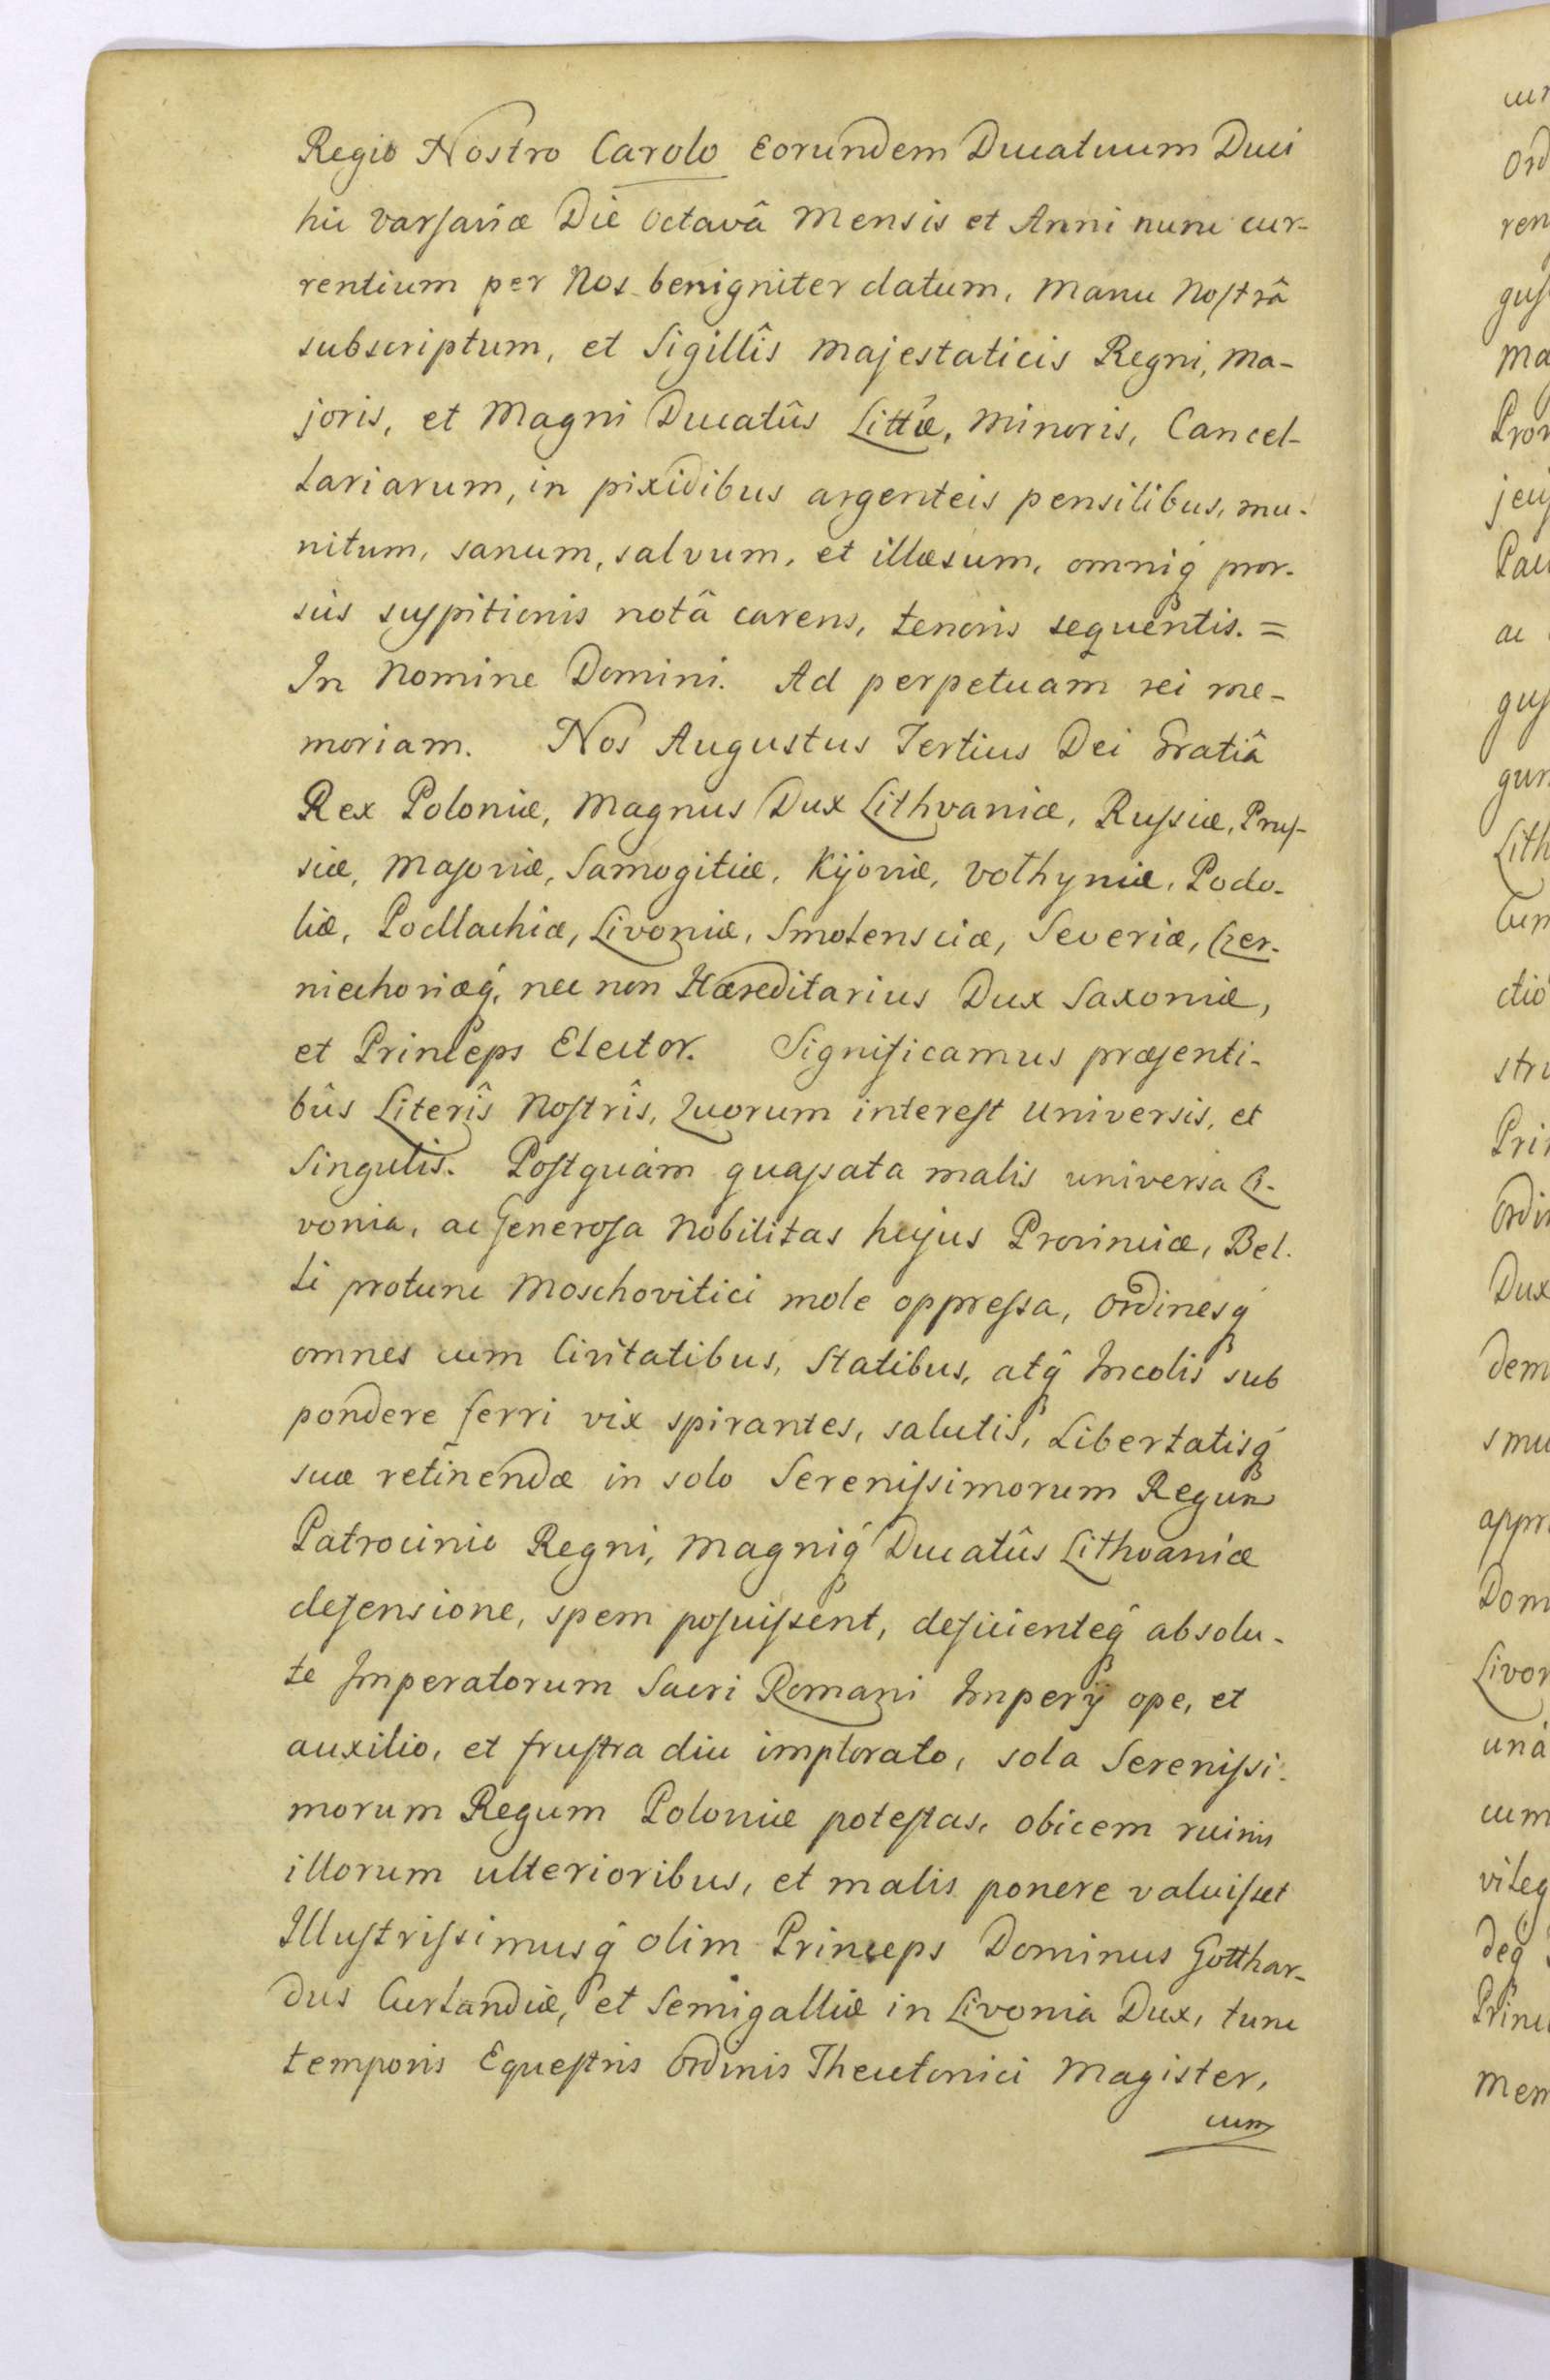 Regio Nostro Carolo Eorundem Ducatuum Duci
hic Varsaviæ Die Octavâ Mensis et Anni nunc cur-
rentium per Nos benigniter datum, manu Nostrâ
subscriptum, et Sigillîs Majestaticis Regni, Ma-
joris, et Magni Ducatûs Littæ, Minoris, Cancel-
lariarum, in pixidibus argenteis pensilibus, mu-
nitum, sanum, salvum, et illæsum, omniq́ pror-
sùs suspitionis notâ carens, tenoris sequentis. =
In Nomine Domini. Ad perpetuam rei me-
moriam. Nos Augustus Tertius Dei Gratiâ
Rex Poloniæ, Magnus Dux Lithvaniæ, Russiæ, Prus-
siæ, Masoviæ, Samogitiæ, Kijoviæ, Volhyniæ, Podo-
liæ, Podlachiæ, Livoniæ, Smolensciæ, Severiæ, Czer-
niechoviæq́, nec non Hæreditarius Dux Saxoniæ,
et Princeps Elector. Significamus præsenti-
bûs Literîs Nostrîs, Quorum interest Universis, et
Singulis. Postquàm quassata malis universa Li-
vonia, ac Generosa Nobilitas hujus Provinciæ, Bel-
li protunc Moschovitici mole oppressa, Ordinesq́
omnes cum Civitatibus, Statibus, atq́ Incolis sub
pondere ferri vix spirantes, salutis, Libertatisq́
suæ retinendæ in solo Serenissimorum Regum
Patrocinio Regni, Magniq́ Ducatûs Lithvaniæ
defensione, spem posuissent, deficienteq́ absolu-
te Imperatorum Sacri Romani Imperij ope, et
auxilio, et frustra diu implorato, sola Serenissi-
morum Regum Poloniæ potestas, obicem ruinis
illorum ulterioribus, et malis ponere valuisset
Illustrissimusq́ olim Princeps Dominus Gotthar-
dus Curlandiæ, et Semigalliæ in Livonia Dux, tunc
temporis Equestris Ordinis Theutonici Magister,
cum